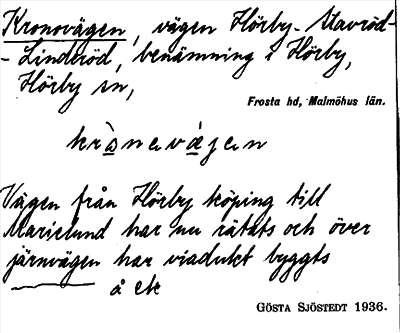 Kronovägen, vägen Hörby-Stavröd-
-Linderöd, benämning i Hörby,
Hörby sn,
Frosta hd, Malmöhus län.
Vägen från Hörby köping till
Marielund har nu rätats och över
järnvägen har viadukt byggts
GÖSTA SJÖSTEDT 1936.